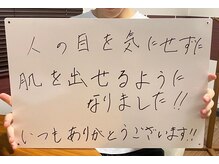 人の目を気にせずに
肌を出せるように
なりました!!
いつもありがとうございます!!